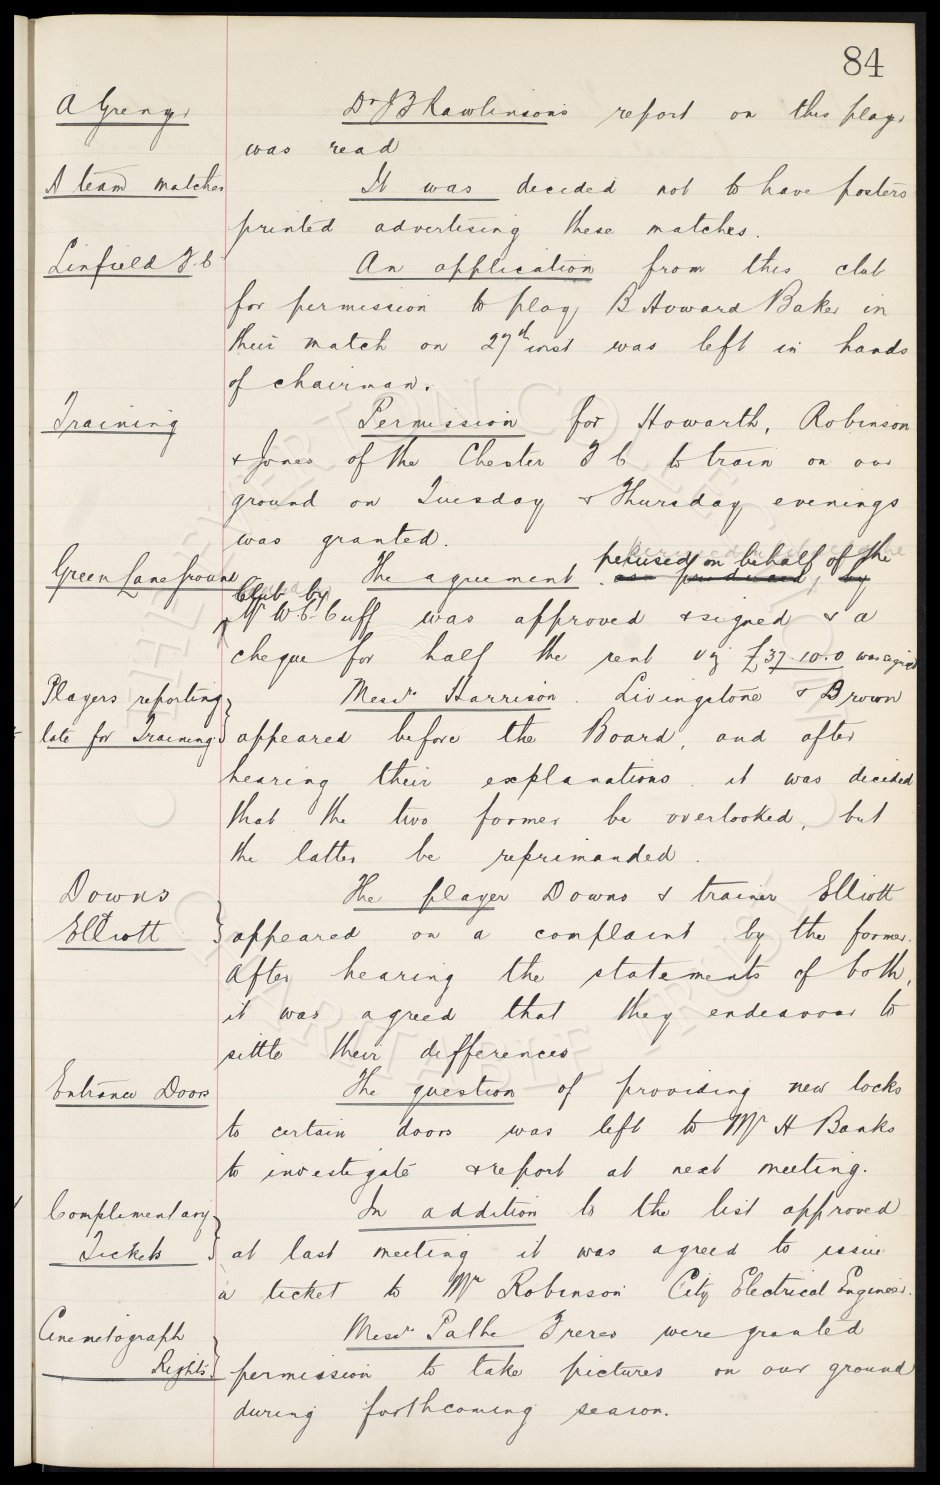 84
A Grenyer
Dr J B Rawlinson's report on this player
was read
A team matches
It was decided not to have posters
printed advertising these matches.
Linfield F.C
An application from this club
for permission to play B Howard Baker in
their match on 27th inst was left in hands
of chairman.
Training
Permission for Howarth, Robinson
& Jones of the Chester F C to train on our
ground on Tuesday & Thursday evenings
was granted.
Green Lane Ground
perused on behalf of the
The agreement as produced, by
Club by
Mr W C Cuff was approved & signed & a
cheque for half the rent viz £37.10.0 was signed
Players reporting
late for Training
Messrs Harrison. Livingstone & Brown
appeared before the Board, and after
hearing their explanations it was decided
that the two former be overlooked, but
the latter be reprimanded.
Downs
Elliott
The player Downs & trainer Elliott
appeared on a complaint by the former.
After hearing the statements of both,
it was agreed that they endeavour to
settle their differences
Entrance Doors
The question of providing new locks
to certain doors was left to Mr H Banks
to investigate & report at next meeting.
Complimentary
Tickets
In addition to the list approved
at last meeting it was agreed to issue
a ticket to Mr Robinson City Electrical Engineer.
Cinemetograph
Rights
Messrs Pathe Freres were granted
permission to take pictures on our ground
during forthcoming season.